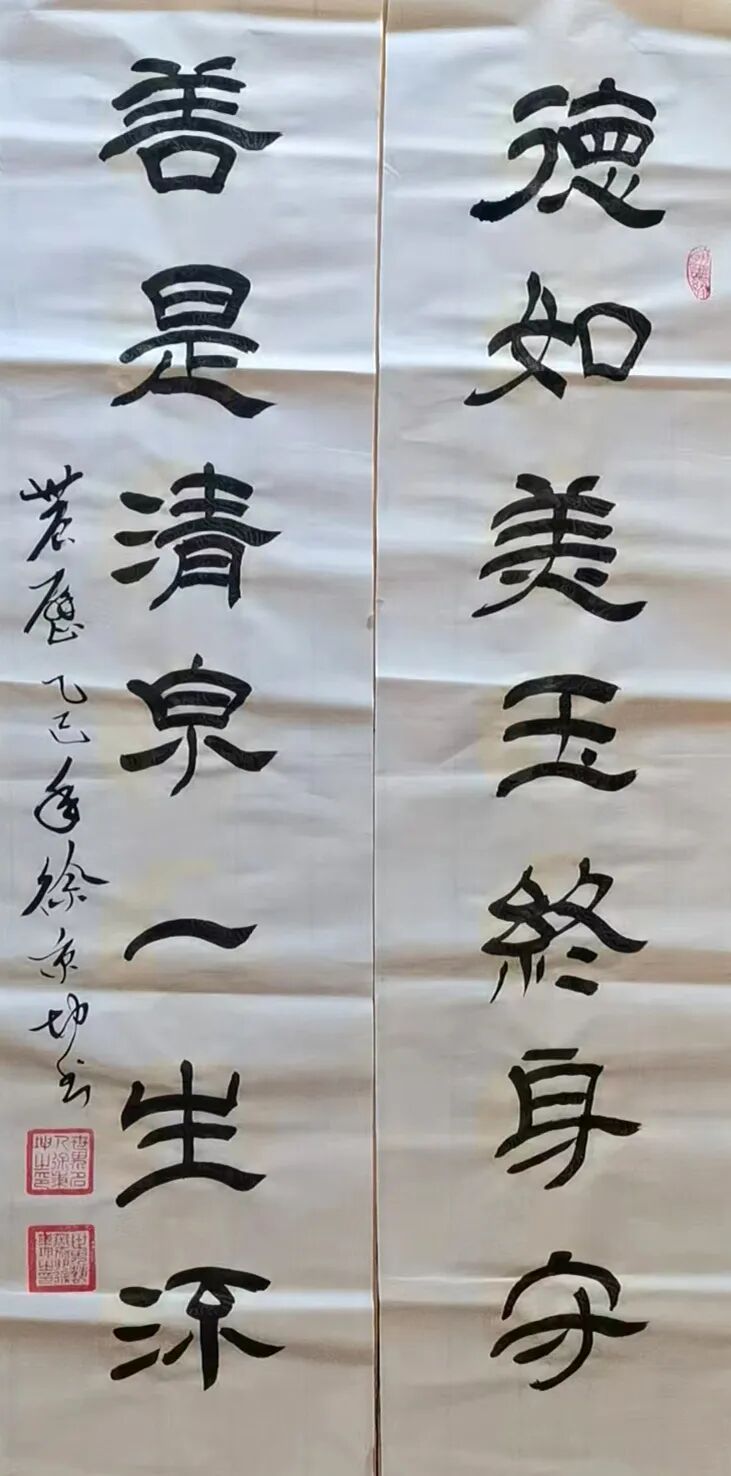 德如美玉終身守
善是清泉一生流
農歷乙巳年徐京坤書